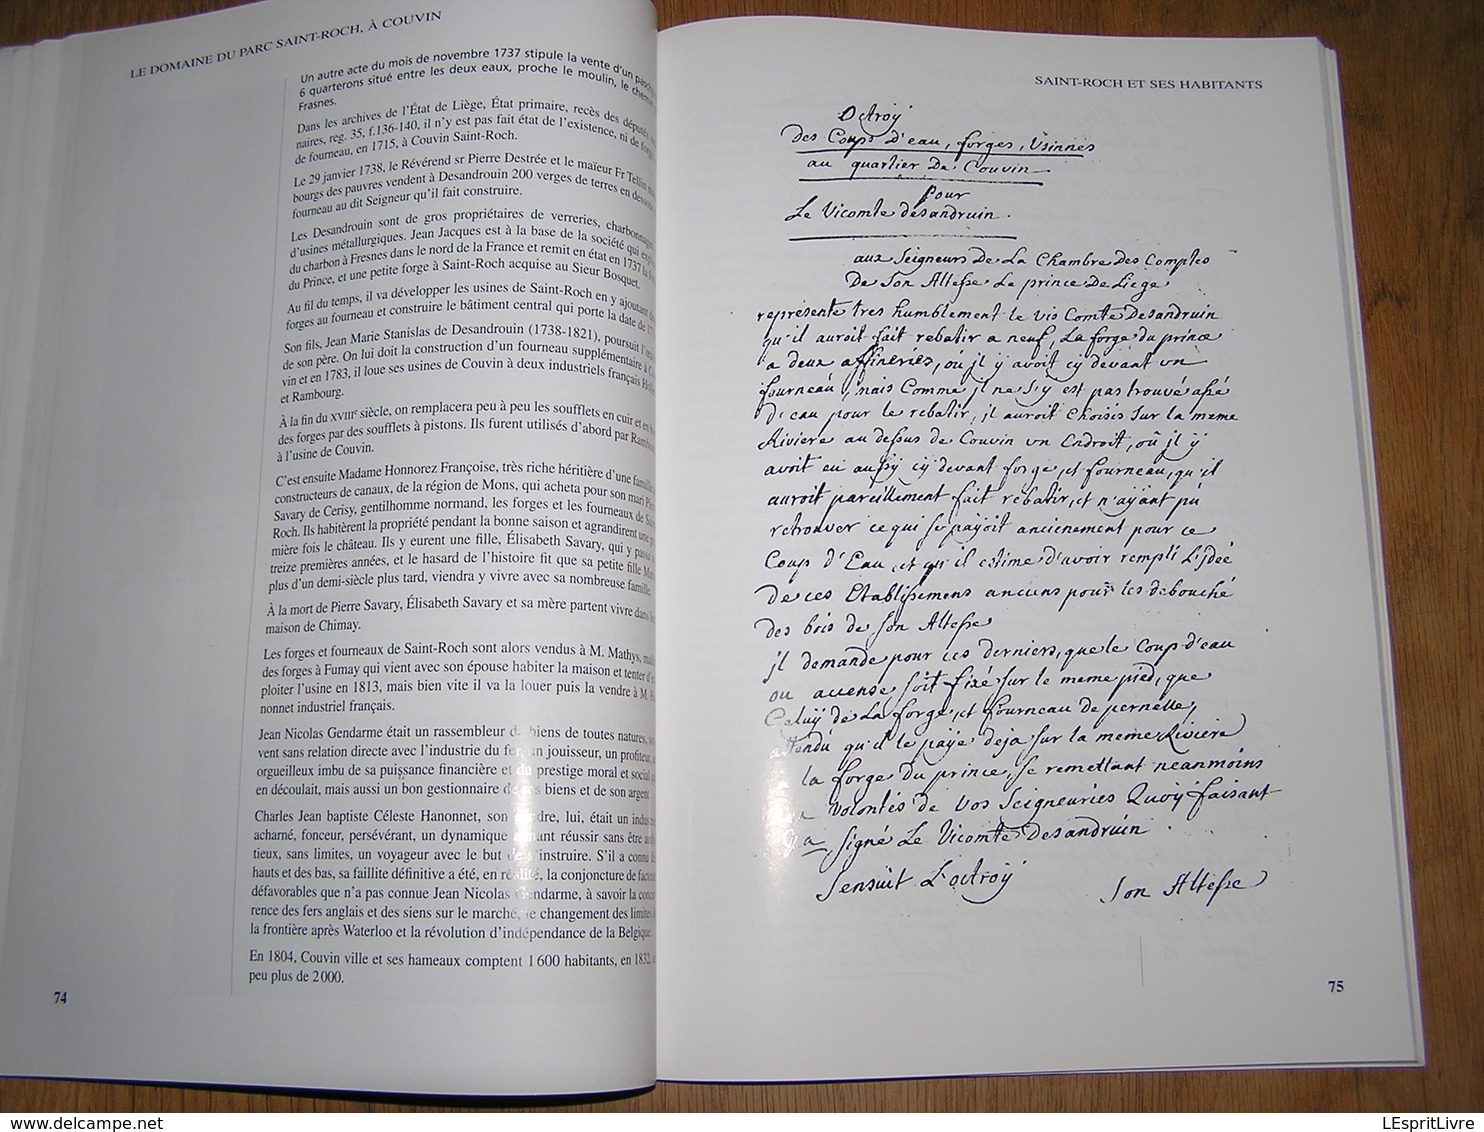 LE DOMAINE DU PARC SAINT-ROCH, À COUVIN
Un autre acte du mois de novembre 1737 stipule la vente d'un
6 quarterons situé entre les deux eaux, proche le moulin, le
Frasnes.
Dans les archives de l'État de Liège, État primaire, recès des
naires, reg. 35, f.136-140, il n'y est pas fait état de l'existence, ni de
de fourneau, en 1715, à Couvin Saint-Roch.
Le 29 janvier 1738, le Révérend sr Pierre Destrée et le maïeur Fr Tellin
bourgs des pauvres vendent à Desandrouin 200 verges de terres en
fourneau au dit Seigneur qu'il fait construire.
Les Desandrouin sont de gros propriétaires de verreries,
d'usines métallurgiques. Jean Jacques est à la base de la société qui
du charbon à Fresnes dans le nord de la France et remit en état en 1737 la
du Prince, et une petite forge à Saint-Roch acquise au Sieur Bosquet.
Au fil du temps, il va développer les usines de Saint-Roch en y ajoutant
forges au fourneau et construire le bâtiment central qui porte la date de
Son fils, Jean Marie Stanislas de Desandrouin (1738-1821), poursuit
de son père. On lui doit la construction d'un fourneau supplémentaire à
vin et en 1783, il loue ses usines de Couvin à deux industriels français
et Rambourg.
À la fin du XVIIIe siècle, on remplacera peu à peu les soufflets en cuir et en
des forges par des soufflets à pistons. Ils furent utilisés d'abord par
à l'usine de Couvin.
C'est ensuite Madame Honnorez Françoise, très riche héritière d'une famille
constructeurs de canaux, de la région de Mons, qui acheta pour son mari
Savary de Cerisy, gentilhomme normand, les forges et les fourneaux de
Roch. Ils habitèrent la propriété pendant la bonne saison et agrandirent une
mière fois le château. Ils y eurent une fille, Élisabeth Savary, qui y passa
treize premières années, et le hasard de l'histoire fit que sa petite fille
plus d'un demi-siècle plus tard, viendra y vivre avec sa nombreuse famille.
À la mort de Pierre Savary, Élisabeth Savary et sa mère partent vivre dans
maison de Chimay.
Les forges et fourneaux de Saint-Roch sont alors vendus à M. Mathys,
des forges à Fumay qui vient avec son épouse habiter la maison et tenter
ploiter l'usine en 1813, mais bien vite il va la louer puis la vendre à M.
nonnet industriel français.
Jean Nicolas Gendarme était un rassembleur de biens de toutes natures,
vent sans relation directe avec l'industrie du fer, un jouisseur, un profiteur,
orgueilleux imbu de sa puissance financière et du prestige moral et social
en découlait, mais aussi un bon gestionnaire de ses biens et de son argent.
Charles Jean baptiste Céleste Hanonnet, son gendre, lui, était un
acharné, fonceur, persévérant, un dynamique voulant réussir sans être
tieux, sans limites, un voyageur avec le but de s'instruire. S'il a connu
hauts et des bas, sa faillite définitive a été, en réalité, la conjoncture de
défavorables que n'a pas connue Jean Nicolas Gendarme, à savoir la
rence des fers anglais et des siens sur le marché, le changement des limites
la frontière après Waterloo et la révolution d'indépendance de la Belgique.
En 1804, Couvin ville et ses hameaux comptent 1600 habitants, en 1832,
peu plus de 2000.
74
SAINT-ROCH ET SES HABITANTS
Octroÿ
des Coups d'eau, forges, Usinnes
au quartier De Couvin
pour
Le Vicomte desandruin.
aux Seigneurs De La Chambre Des Comptes
De Son Altesse Le prince De Liege
represente tres humblement le vis Comte Desandruin
qu'il auroit fait rebatir a neuf, La forge du prince
a deux affineries, où jl ÿ avoit cÿ devant un
fourneau, mais Comme jl ne s'y est pas trouvé assé
D'eau pour le rebatir, jl auroit Choisis Sur La meme
Riviere au dessus de Couvin un Endroit, où jl ÿ
avoit eu aussÿ cÿ devant forge, et fourneau, qu'il
auroit pareillement fait rebatir, et n'aÿant pû
retrouver ce qui se paÿoit anciennement pour ce
Coup d'Eau, et qu'il estime d'avoir rempli L'jdée
De ces Etablissemens anciens pour les debouché
des bois de Son Altesse
jl demande pour ces derniers, que le Coup d'eau
ou accense, soit fixé sur le meme pied, que
Celuÿ de La forge, et fourneau de pernelle,
attendu qu'il le paÿe deja sur la meme Riviere
la forge Du prince, se remettant neanmoins
volontés de vos Seigneuries Quoÿ faisant
signé Le Vicomte Desandruin
Sensüit L'octroÿ
Son Altesse
75
LEspritLivre